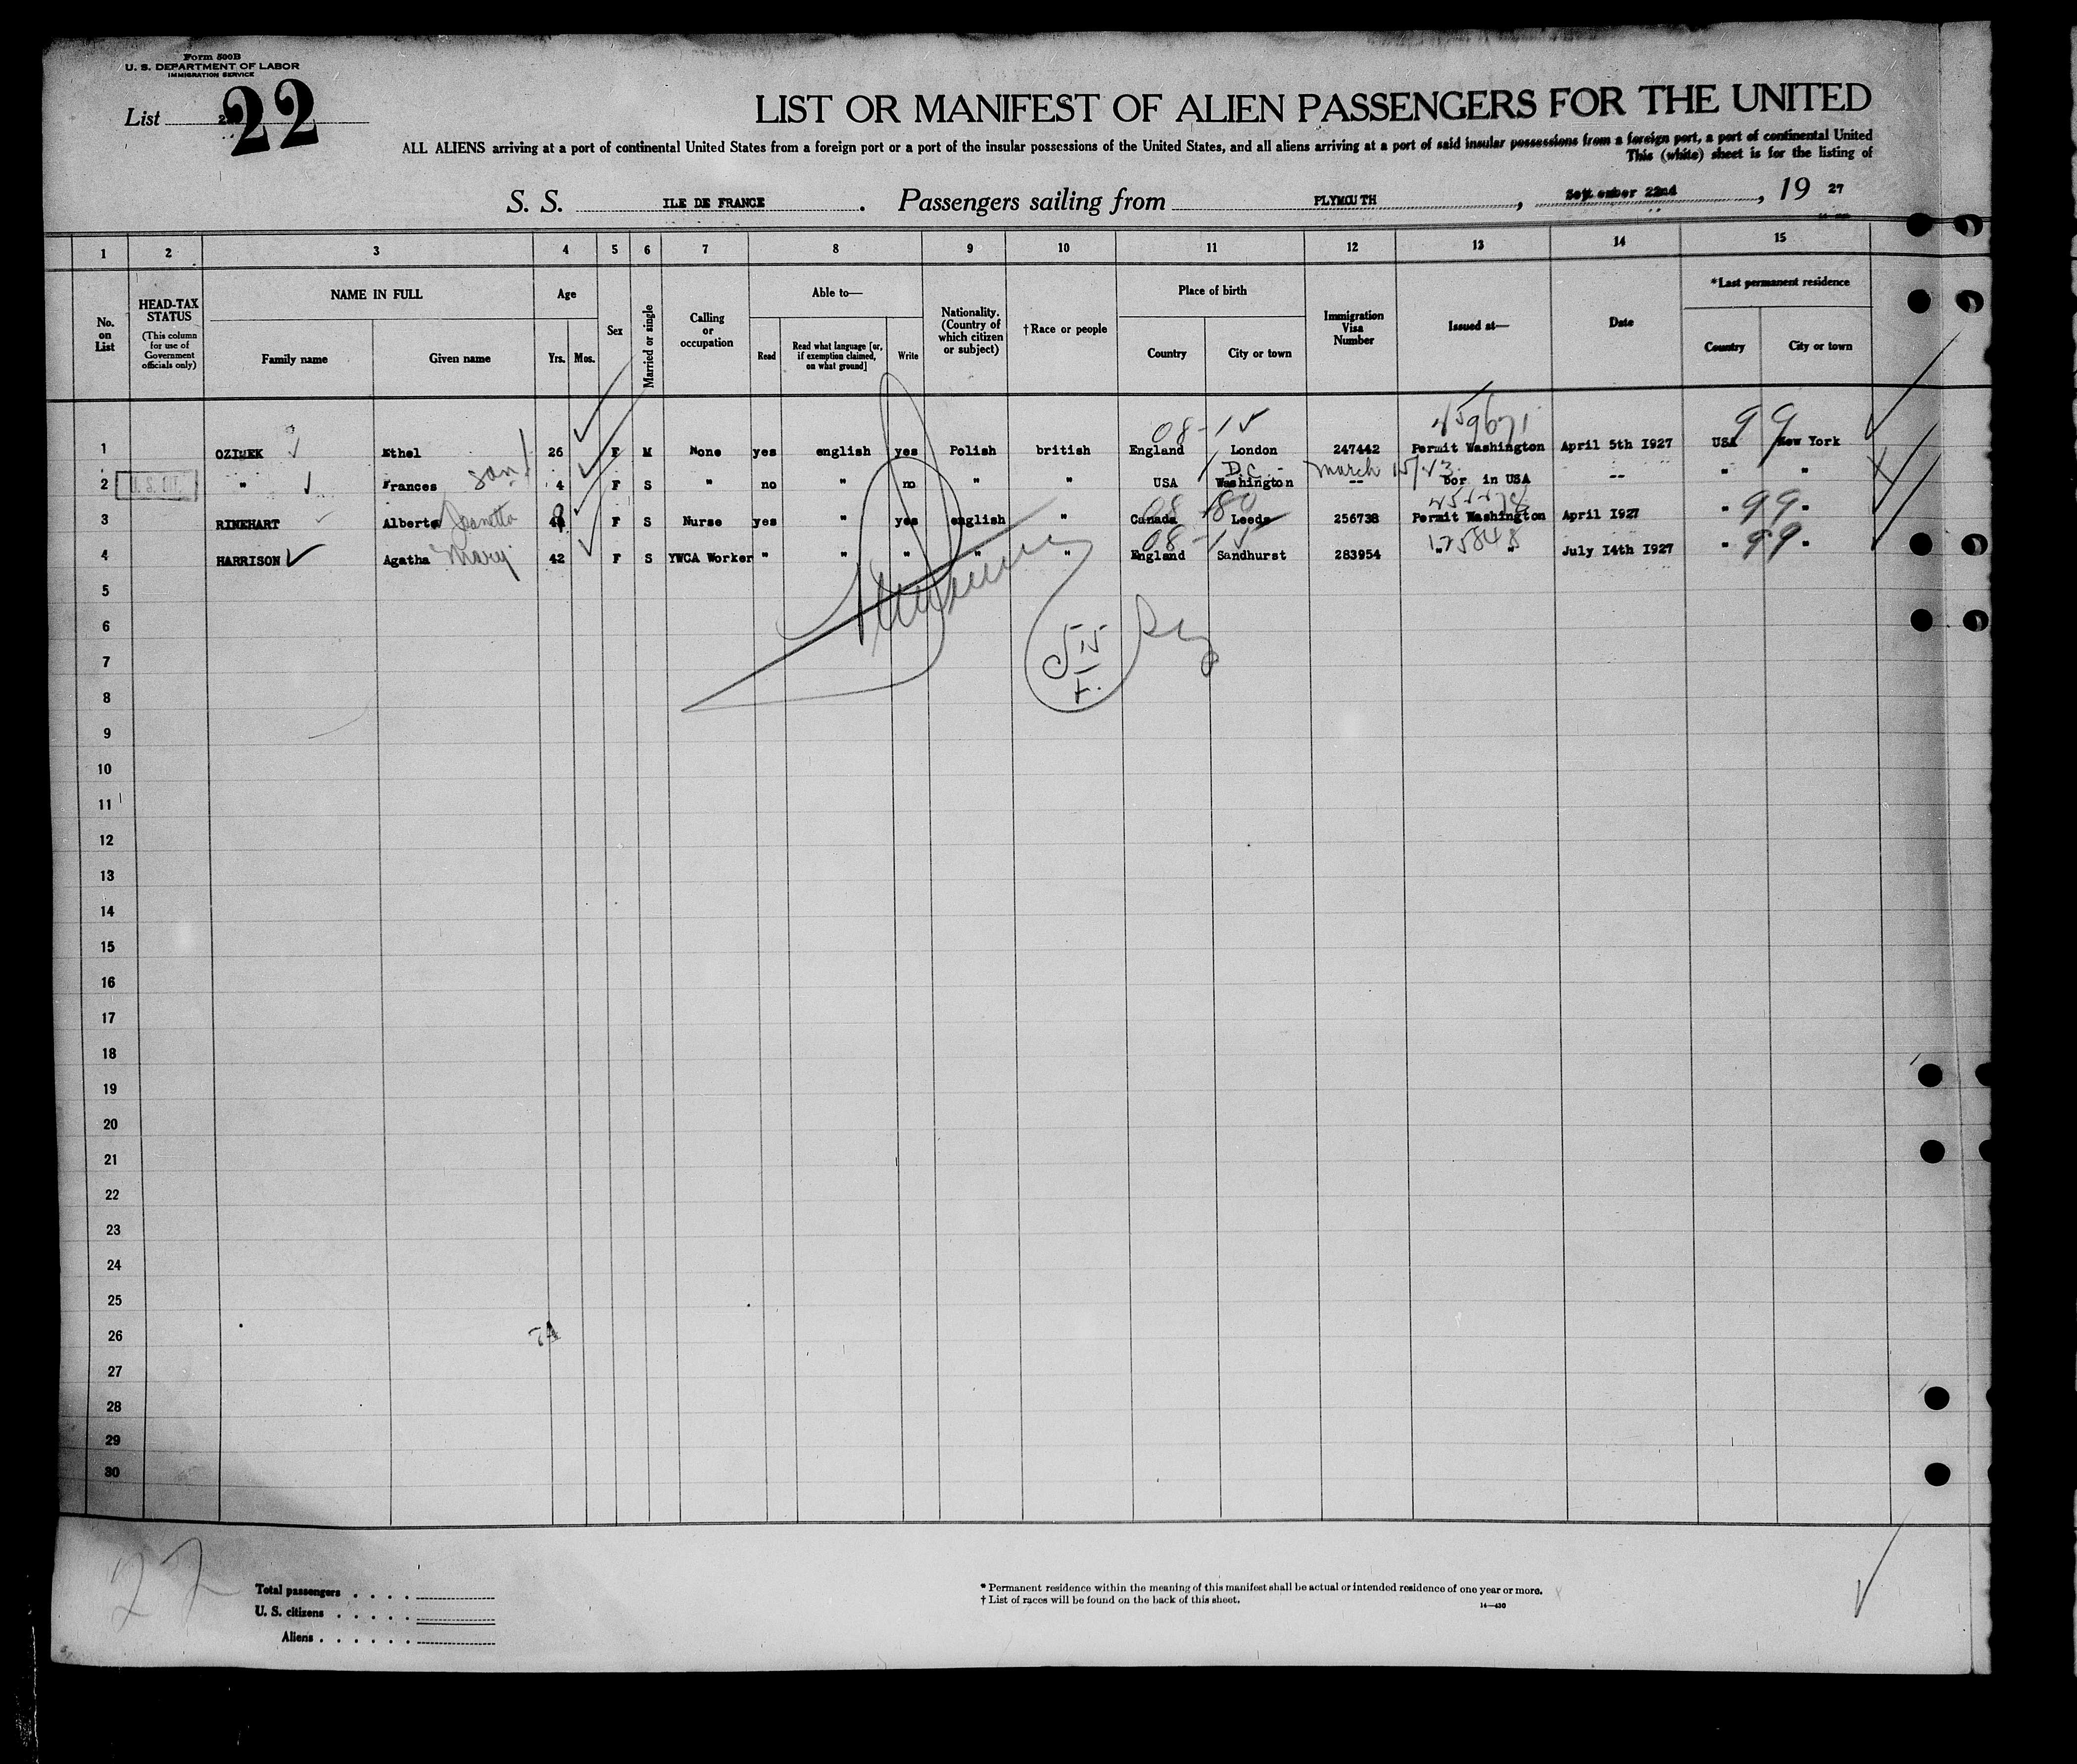 Form 500B
U. S. DEPARTMENT OF LABOR
IMMIGRATION SERVICE
List 22
LIST OR MANIFEST OF ALIEN PASSENGERS FOR THE UNITED
ALL ALIENS arriving at a port of continental United States from a foreign port or a port of the insular possessions of the United States, and all aliens arriving at a port of said insular possessions from a foreign port, a port of continental United
This (white) sheet is for the listing of
S. S. ILE DE FRANCE. Passengers sailing from PLYMOUTH, September 22nd, 19 27
1 2 3 4 5 6 7 8 9 10 11 12 13 14 15
No. on List
HEAD-TAX STATUS
(This column for use of Government officials only)
NAME IN FULL
Family name
Given name
Age
Yrs.
Mos.
Sex
Married or single
Calling or occupation
Able to—
Read
Read what language [or, if exemption claimed, on what ground]
Write
Nationality. (Country of which citizen or subject)
† Race or people
Place of birth
Country
City or town
Immigration Visa Number
Issued at—
Date
*Last permanent residence
Country
City or town
08-15 99
1 OZIMEK Ethel 26 F M None yes english yes Polish british England London 247442 Permit Washington April 5th 1927 USA New York
D.C. March 15/23
2 U.S. CIT. " Frances 4 F S " no " no " " USA Washington -- bor in USA -- " "
3 RINEHART Alberta Jeanetta F S Nurse yes " yes english " Canada Leeds 256738 Permit Washington April 1927 " 99 "
08-15 175848
4 HARRISON Agatha Mary 42 F S YWCA Worker " " " " " England Sandhurst 283954 " " July 14th 1927 " 99 "
5
6
7
8
9
10
11
12
13
14
15
16
17
18
19
20
21
22
23
24
25
26
27
28
29
30
22
Total passengers . . . .
U. S. citizens . . . . .
Aliens . . . . . .
* Permanent residence within the meaning of this manifest shall be actual or intended residence of one year or more.
† List of races will be found on the back of this sheet.
14—430